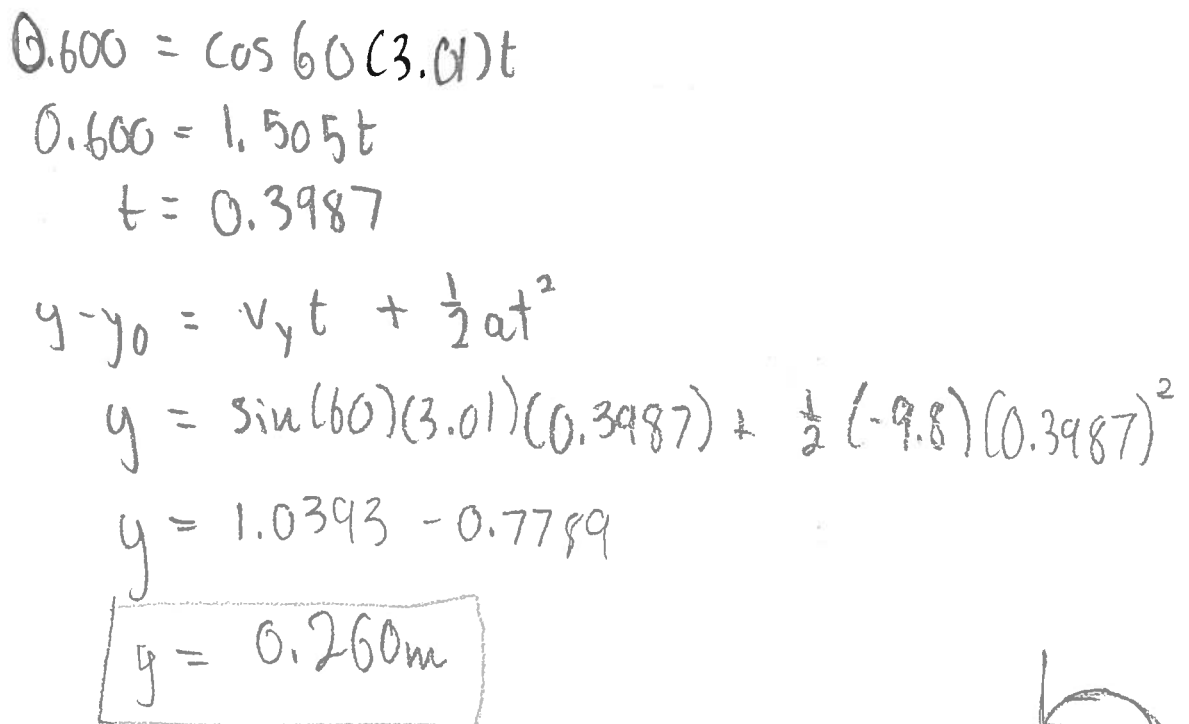 0.600 = cos 60 (3.01)t
0.600 = 1.505t
t = 0.3987
y-y₀ = vᵧt + ½at²
y = sin(60)(3.01)(0.3987) + ½(-9.8)(0.3987)²
y = 1.0393 - 0.7789
y = 0.260m
b